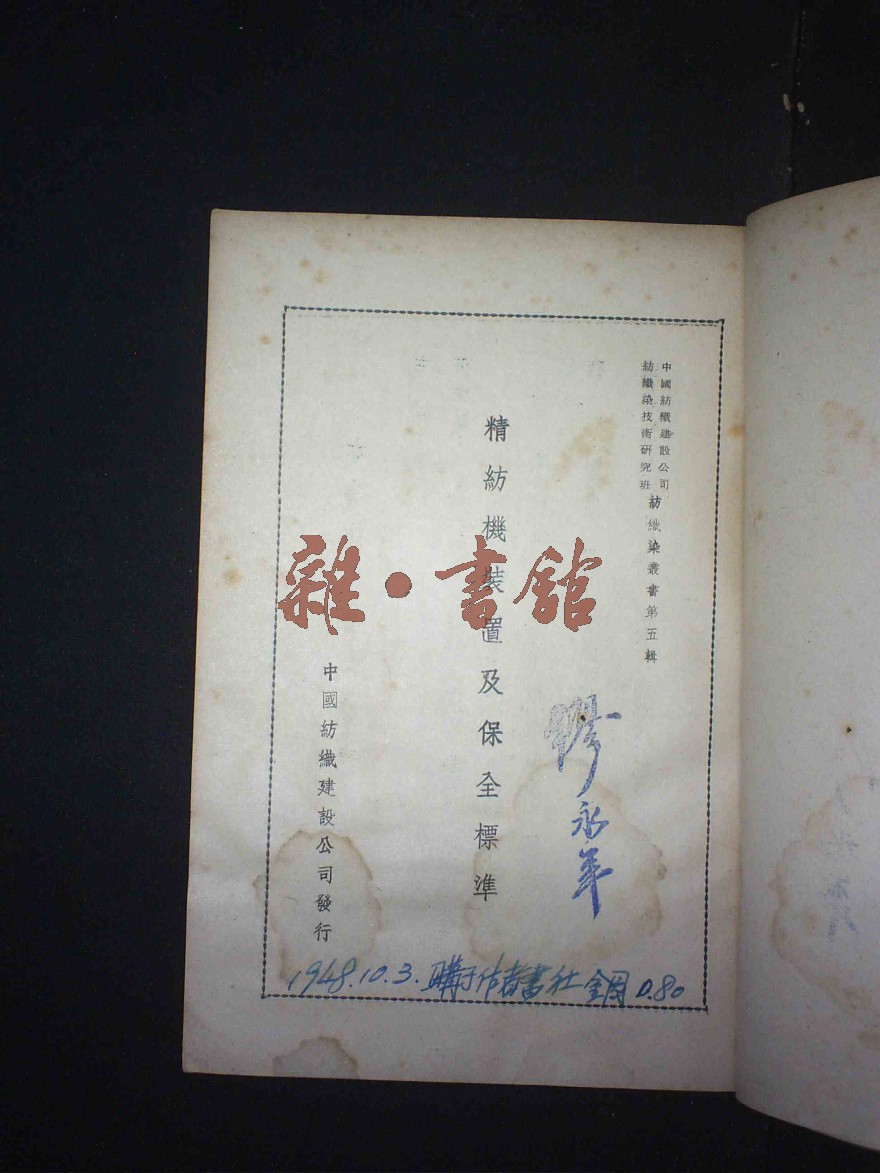 中國紡織建設公司
紡織染技術研究班
紡織染叢書第五輯
精紡機裝置及保全標準
繆永年
中國紡織建設公司發行
1948.10.3.購于作者書社 金圓0.80
雜·書館